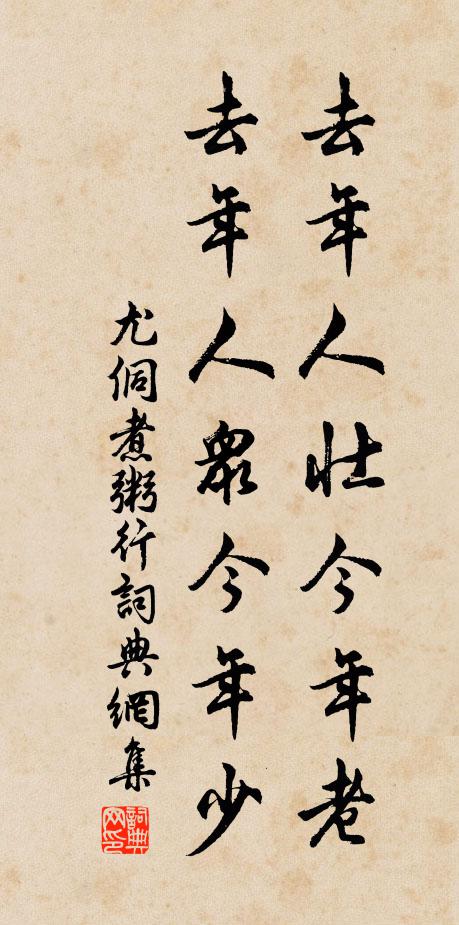 去年人壯今年老
去年人眾今年少
尤侗煮粥行詞典網集
詞典网印